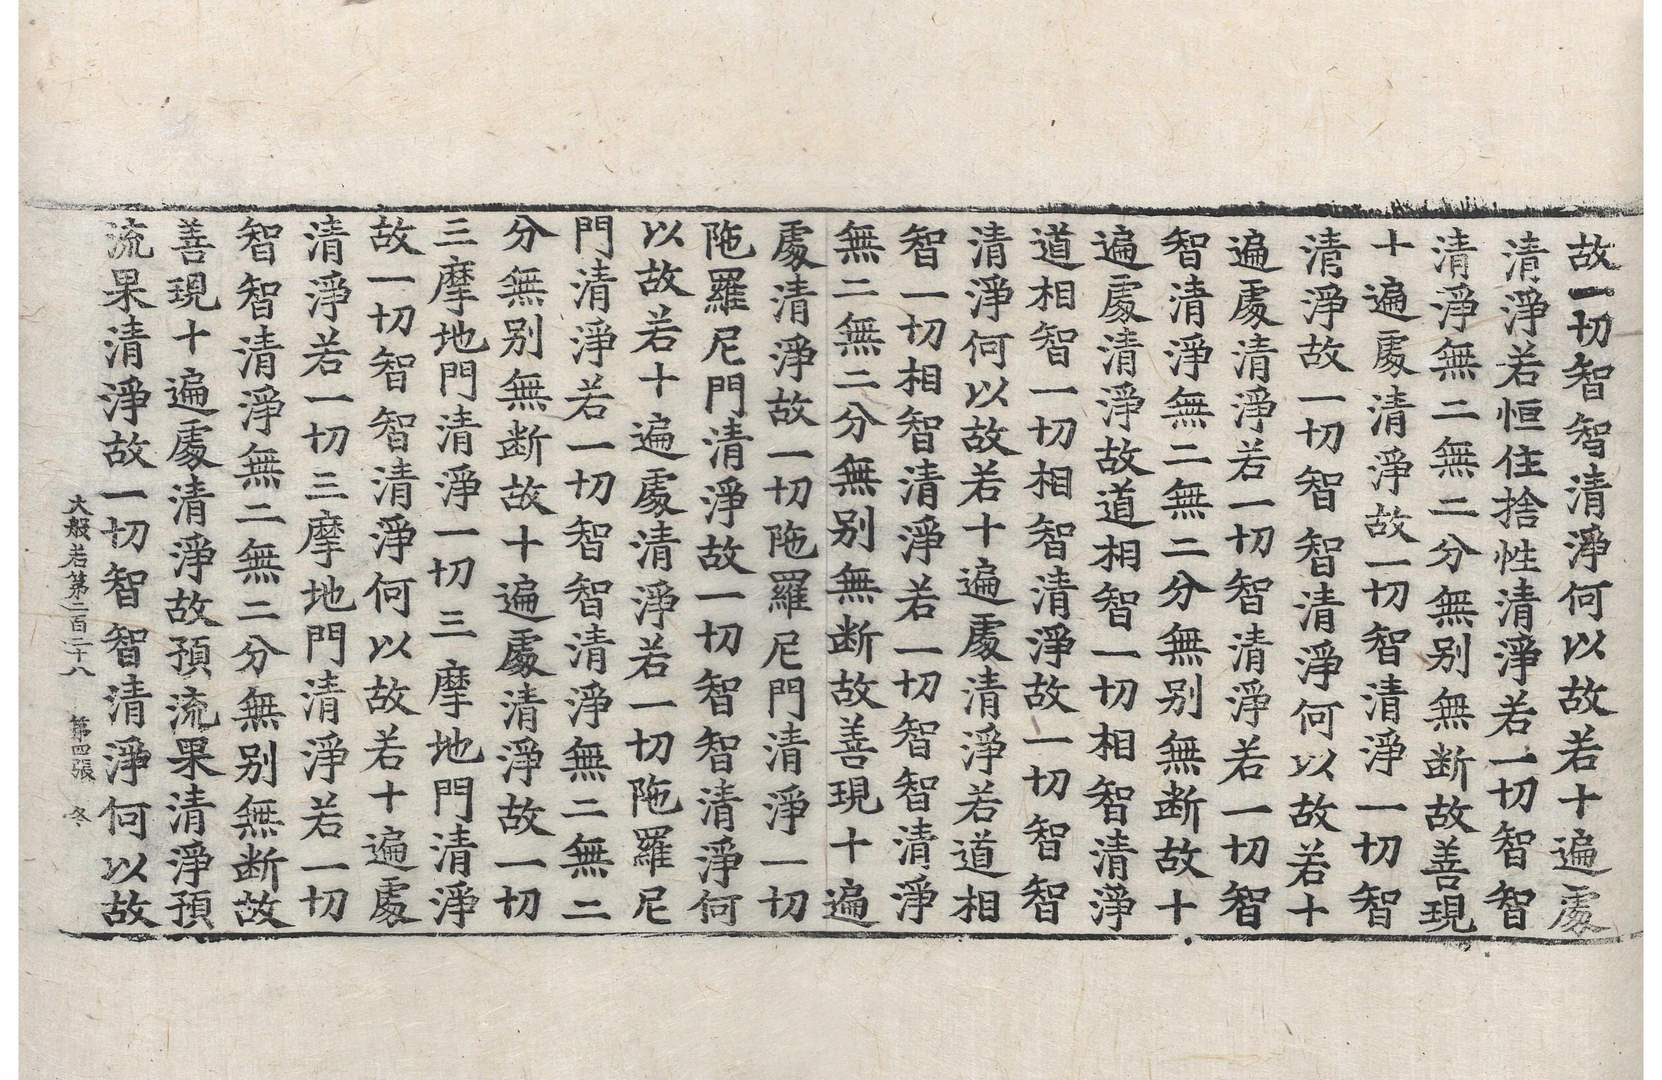 故一切智智清淨何以故若十遍處
清淨若恒住捨性清淨若一切智智
清淨無二無二分無别無断故善現
十遍處清淨故一切智清淨一切智
清淨故一切智智清淨何以故若十
遍處清淨若一切智清淨若一切智
智清淨無二無二分無别無断故十
遍處清淨故道相智一切相智清淨
道相智一切相智清淨故一切智智
清淨何以故若十遍處清淨若道相
智一切相智清淨若一切智智清淨
無二無二分無别無断故善現十遍
處清淨故一切陁羅尼門清淨一切
陁羅尼門清淨故一切智智清淨何
以故若十遍處清淨若一切陁羅尼
門清淨若一切智智清淨無二無二
分無别無断故十遍處清淨故一切
三摩地門清淨一切三摩地門清淨
故一切智智清淨何以故若十遍處
清淨若一切三摩地門清淨若一切
智智清淨無二無二分無别無断故
善現十遍處清淨故預流果清淨預
流果清淨故一切智智清淨何以故
大般若第二百二十八 第四張 冬